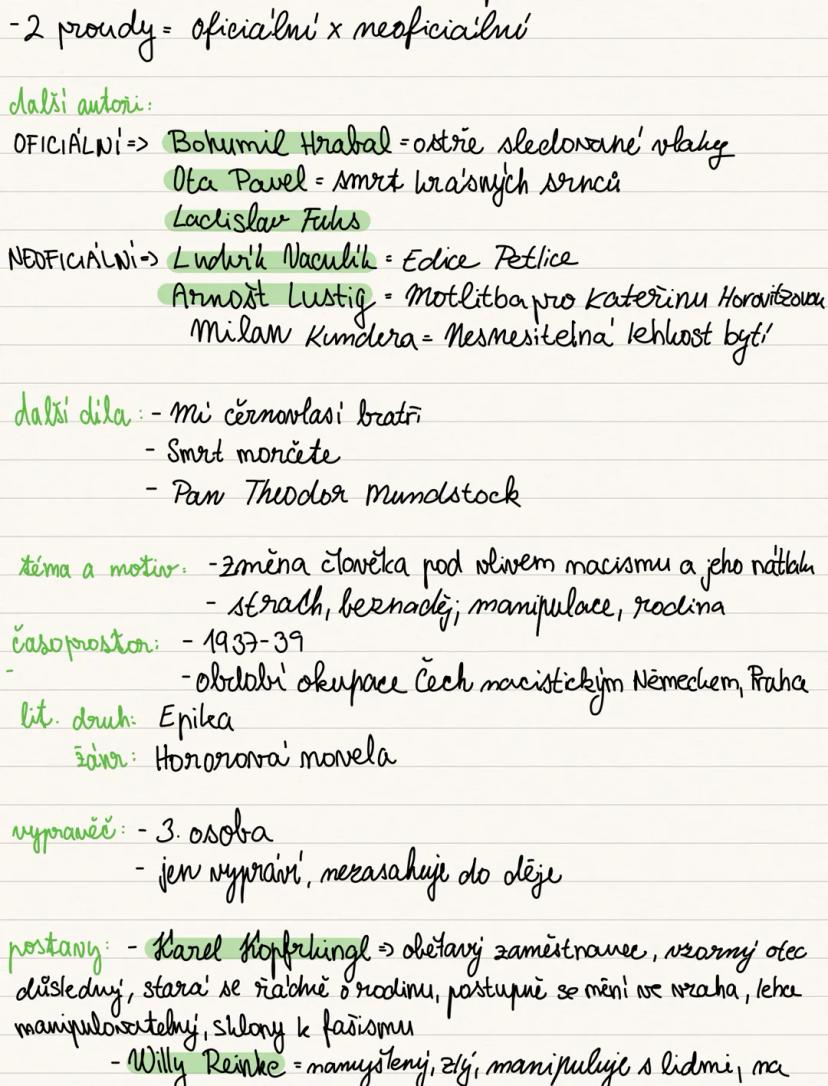 -2 proudy = oficiální x neoficiální
další autoři:
OFICIÁLNÍ => Bohumil Hrabal = ostře sledované vlaky
Ota Pavel = smrt krásných srnců
Ladislav Fuks
NEOFICIÁLNÍ => Ludvík Vaculík = Edice Petlice
Arnošt Lustig = Motlitba pro Kateřinu Horovitzovou
Milan Kundera = Nesnesitelná lehkost bytí
další díla: - Mí černovlasí bratři
- Smrt morčete
- Pan Theodor Mundstock
téma a motiv: - změna člověka pod vlivem nacismu a jeho nátlaku
- strach, beznaděj, manipulace, rodina
časoprostor: - 1937-39
- období okupace Čech nacistickým Německem, Praha
lit. druh: Epika
žánr: Hororová novela
vypravěč: - 3. osoba
- jen vypráví, nezasahuje do děje
postavy: - Karel Kopfrkingl => obětavý zaměstnanec, vzorný otec
důsledný, stará se řádně o rodinu, postupně se mění ve vraha, lehce
manipulovatelný, sklony k fašismu
- Willy Reinke = namyšlený, zlý, manipuluje s lidmi, na